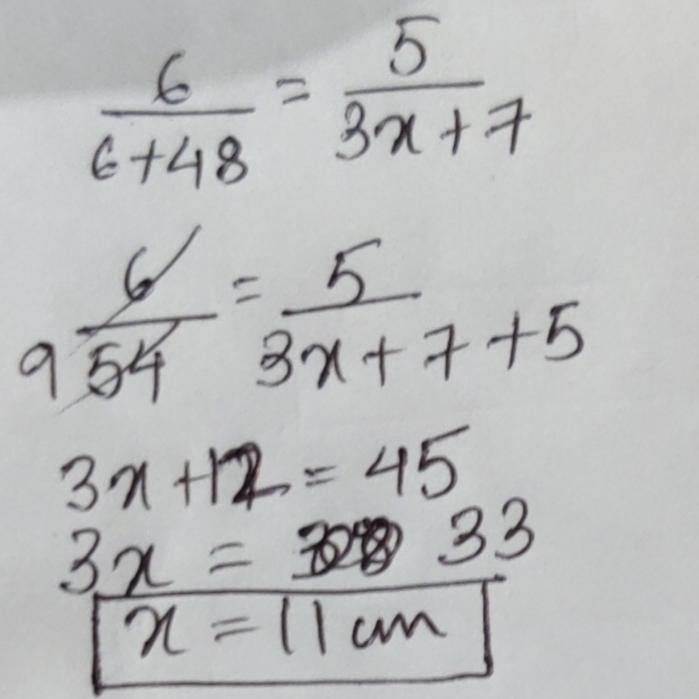 6/(6+48) = 5/(3x+7)
9 6/54 = 5/(3x+7+5)
3x+12 = 45
3x = 33
x = 11 cm